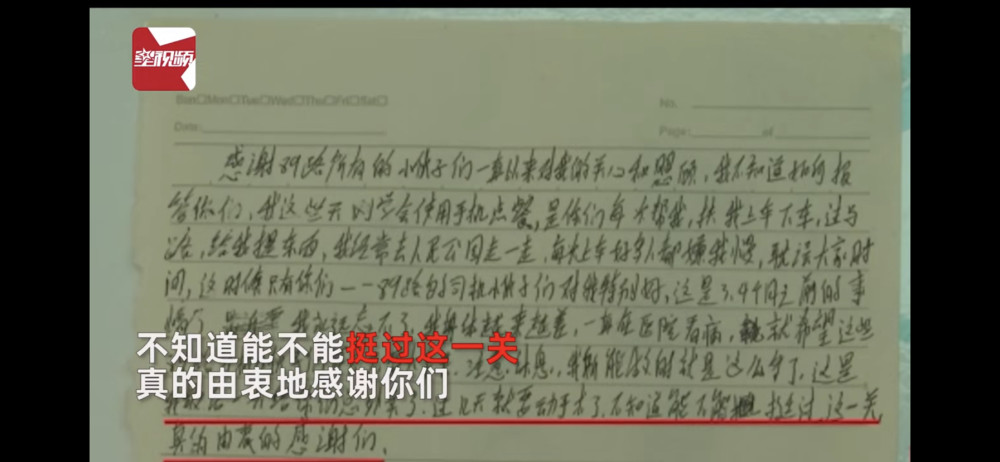 星视频
Sun□Mon□Tue□Wed□Thu□Fri□Sat□
No.
Date:
Page: of
感谢89路所有的小伙子们一直以来对我的关心和照顾，我不知道如何报
答你们，我这些天刚学会使用手机点餐，是你们每次帮我，扶我上车下车，过马
路，给我提东西，我经常去人民公园走一走，每次上车好多人都嫌我慢，耽误大家时
间，这时候只有你们——89路的司机小伙子们对我特别好，这是3.4个月之前的事
情了，我的身体越来越差，一直在医院看病，就希望这些
注意休息，我所能做的就是这么多了，这是
这几天就要动手术了，不知道能不能挺过这一关
真的由衷的感谢你们。
不知道能不能挺过这一关
真的由衷地感谢你们